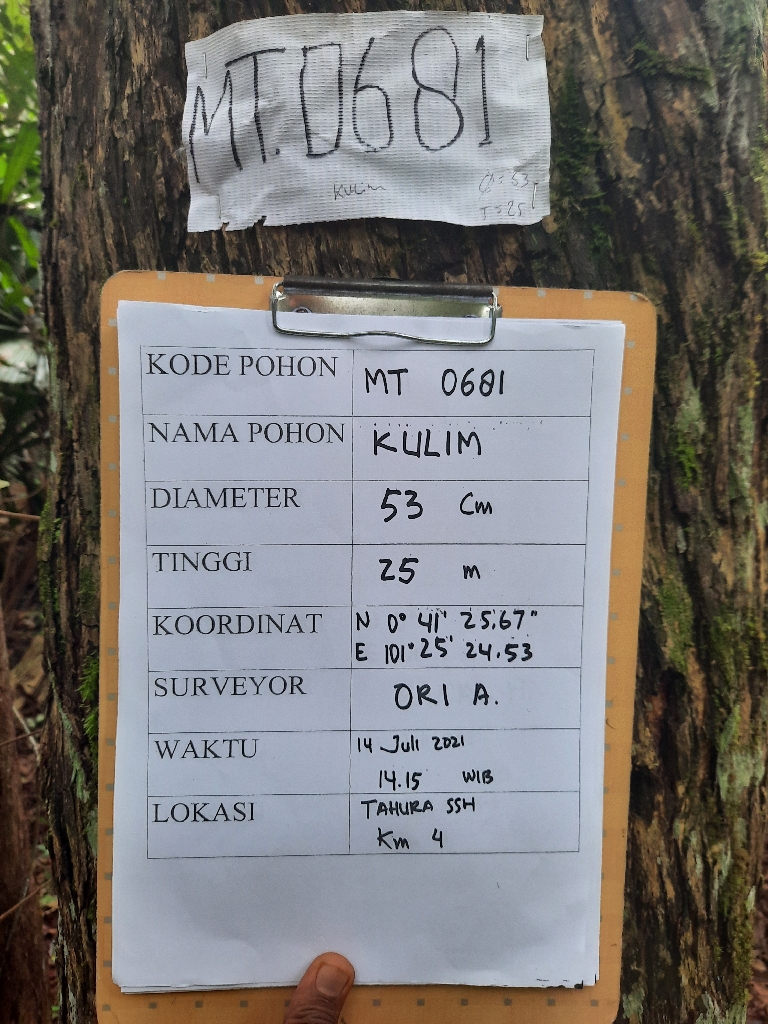 MT.0681
Kulim
Ø=53
T=25
KODE POHON MT 0681
NAMA POHON KULIM
DIAMETER 53 Cm
TINGGI 25 m
KOORDINAT N 0° 41' 25,67"
E 101° 25' 24.53
SURVEYOR ORI A.
WAKTU 14 Juli 2021
14.15 WIB
LOKASI TAHURA SSH
Km 4